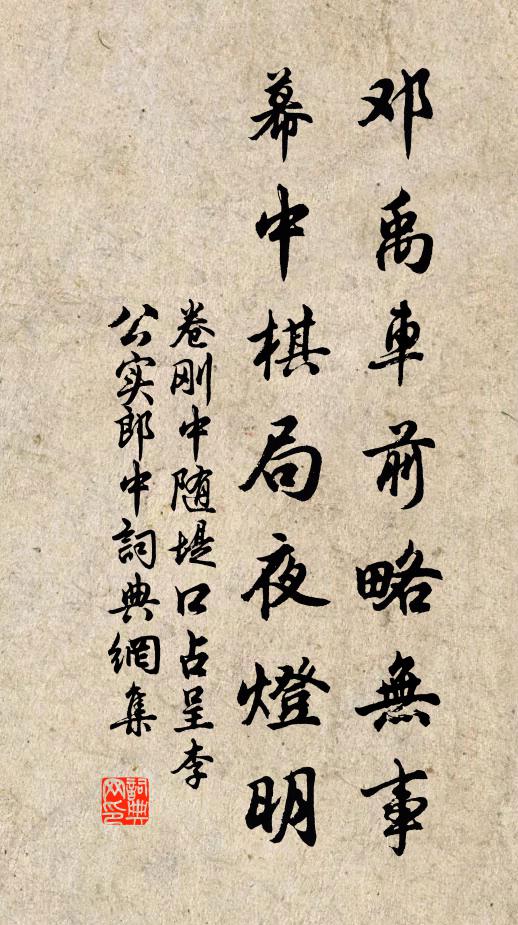 邓禹車前略無事
幕中棋局夜燈明
卷刚中随堤口占呈李
公实郎中詞典網集
詞典网印